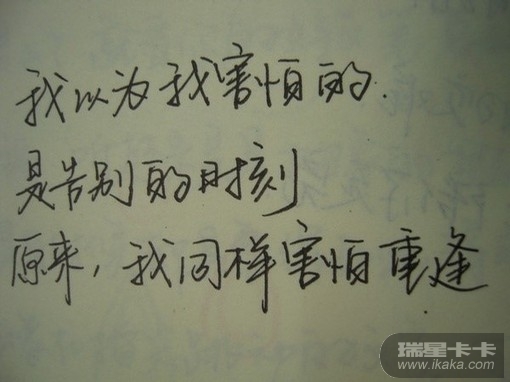 我以为我害怕的.
是告别的时刻
原来，我同样害怕重逢
瑞星卡卡
www.ikaka.com